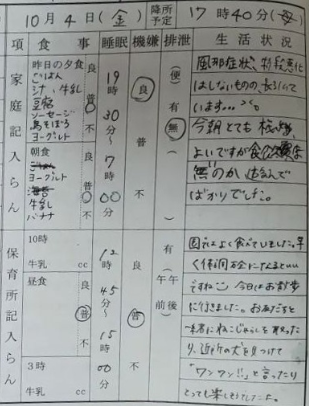 10月4日(金) 降所予定 17時40分(母)
項 食事 睡眠 機嫌 排泄 生活状況
家庭記入らん
昨日の夕食
ごはん
牛乳
豆腐
ソーセージ
鳥そぼろ
ヨーグルト
朝食
ヨーグルト
牛乳
バナナ
良 普 不
19時30分〜7時00分
良 普 不
(便) 有 無
風邪症状、特段悪化
はしないものの、長引いて
います…。
今朝とても機嫌
よいですが食欲は
無いのか、遊んで
ばかりでした。
保育所記入らん
10時
牛乳 cc
昼食
3時
牛乳 cc
良 普 不
12時45分〜15時00分
良 普 不
有(午前 午後) 無
園ではよく食べていました。早
く体調万全になるといい
ですね。今日はお散歩
に行きました。お友だちと
一緒にねこじゃらしを取った
り、近所の犬を見つけて
「ワンワン!!」と言ったり
とっても楽しそうでしたよ。